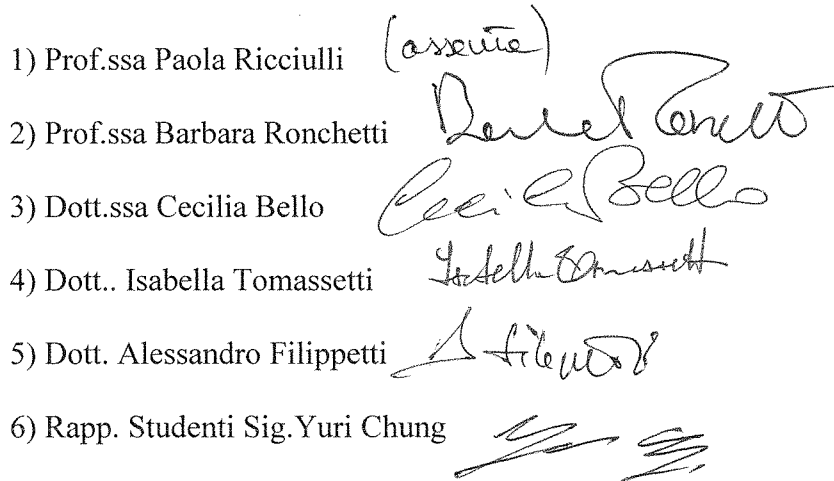 1) Prof.ssa Paola Ricciulli (assente)
2) Prof.ssa Barbara Ronchetti Barbara Ronchetti
3) Dott.ssa Cecilia Bello Cecilia Bello
4) Dott.. Isabella Tomassetti Isabella Tomassetti
5) Dott. Alessandro Filippetti A Filippetti
6) Rapp. Studenti Sig.Yuri Chung